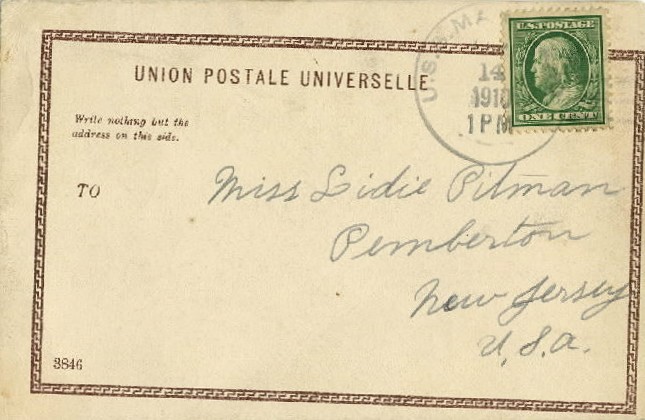 UNION POSTALE UNIVERSELLE
U.S. POSTAGE
ONE CENT
14
1910
1 PM
Write nothing but the
address on this side.
TO
Miss Lidie Pitman
Pemberton
New Jersey
U.S.A.
3846